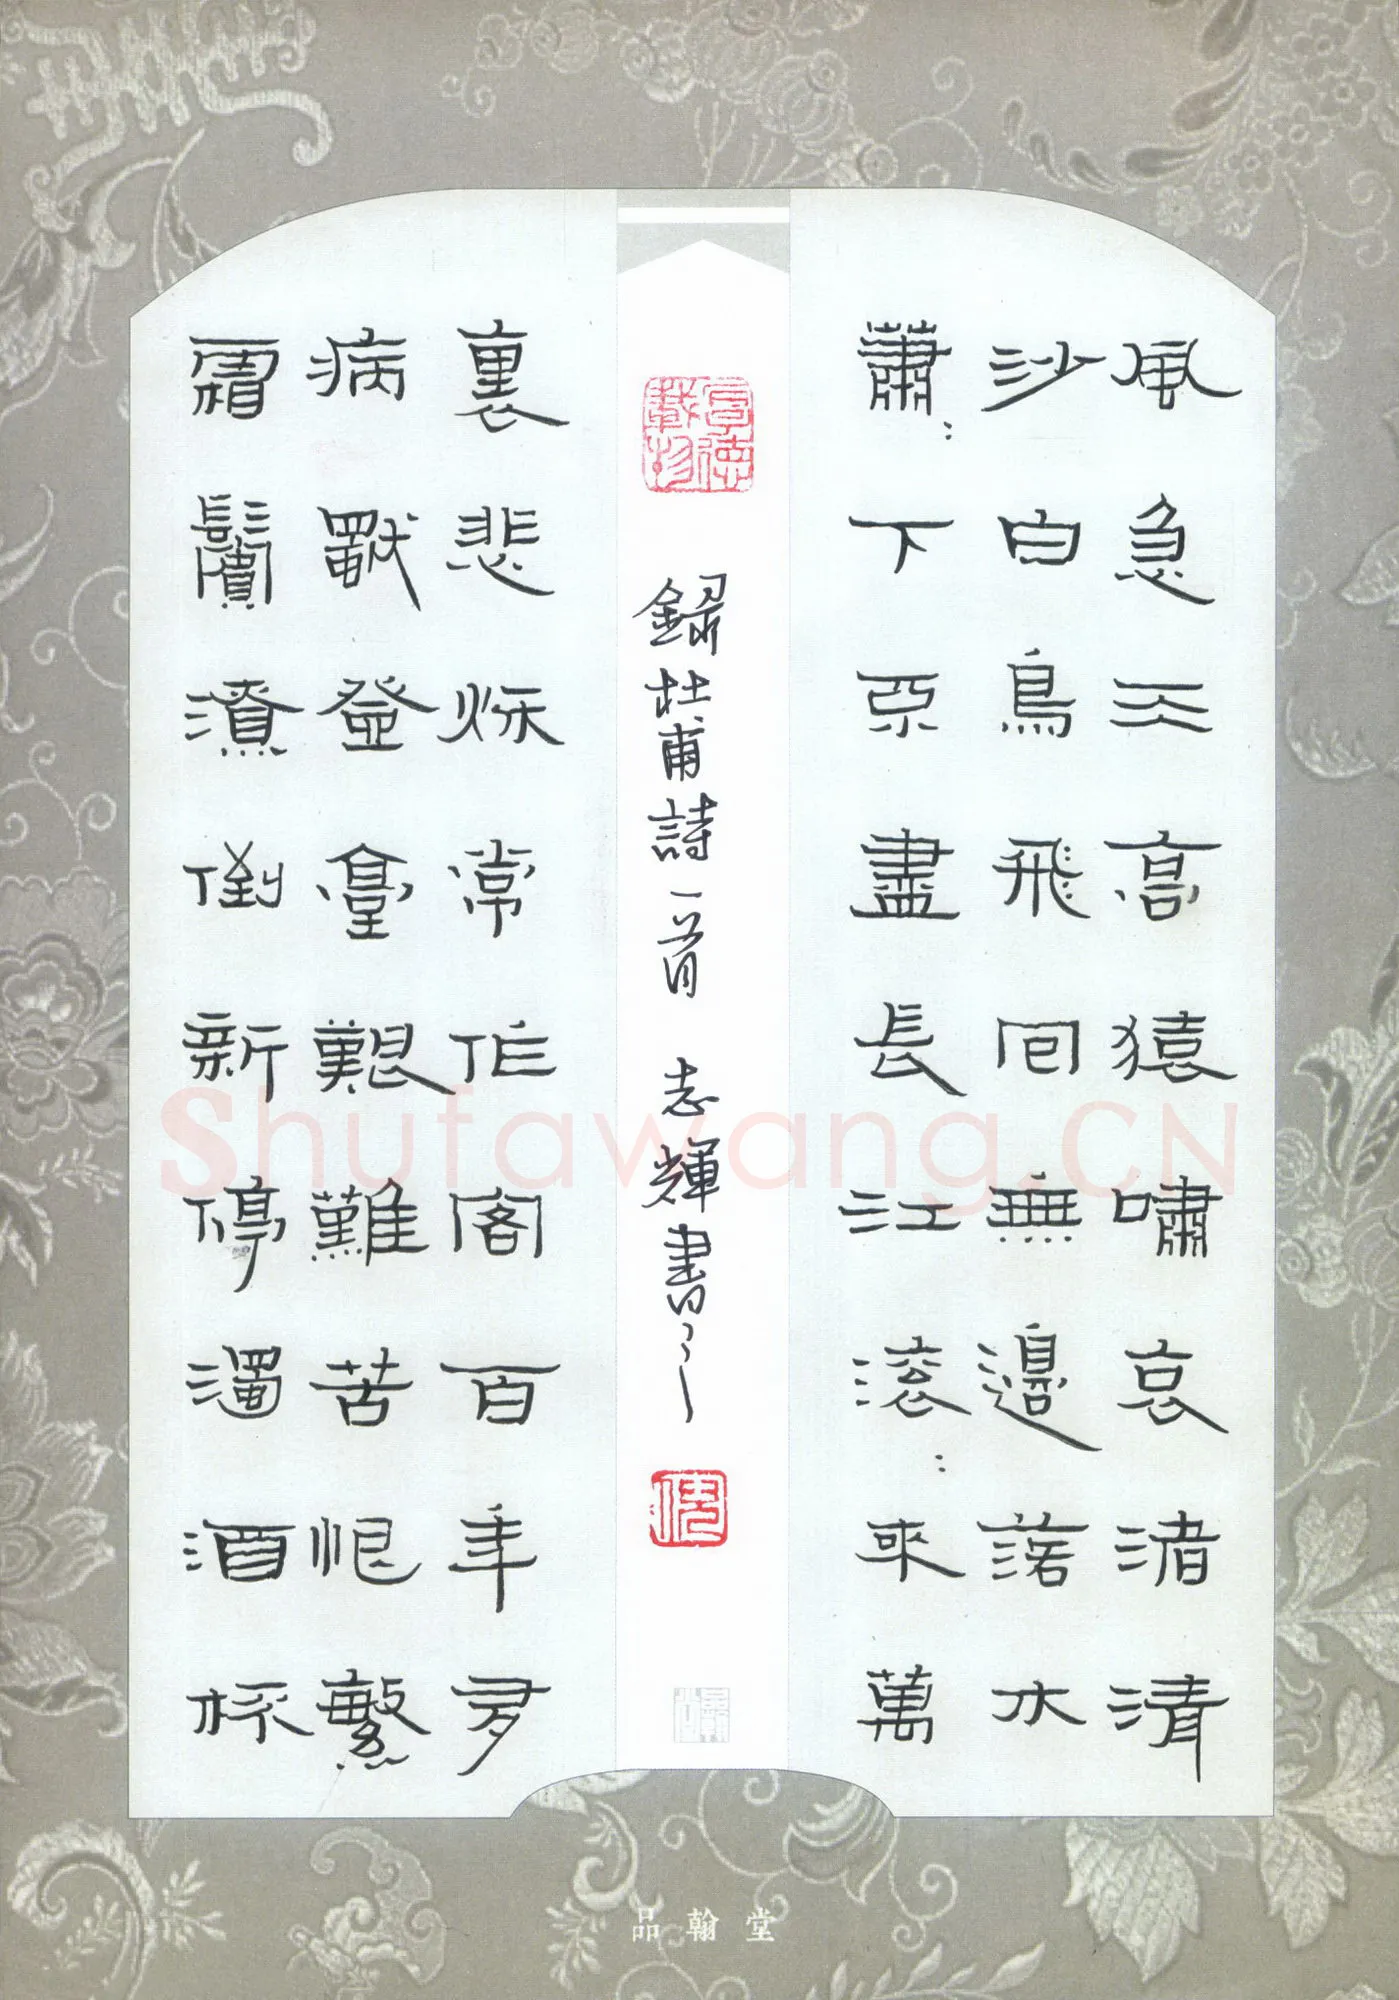 風急天高猿嘯哀渚清
沙白鳥飛囘無邊落木
蕭:下不盡長江滚:來萬
厚德載物
録杜甫詩一首 志輝書
裏悲秌常作客百年多
病獨登臺艱難苦恨繁
霜鬢潦倒新停濁酒杯
Shufawang.CN
品翰堂